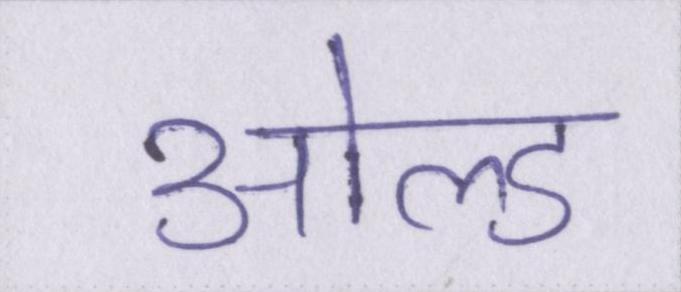 ओल्ड